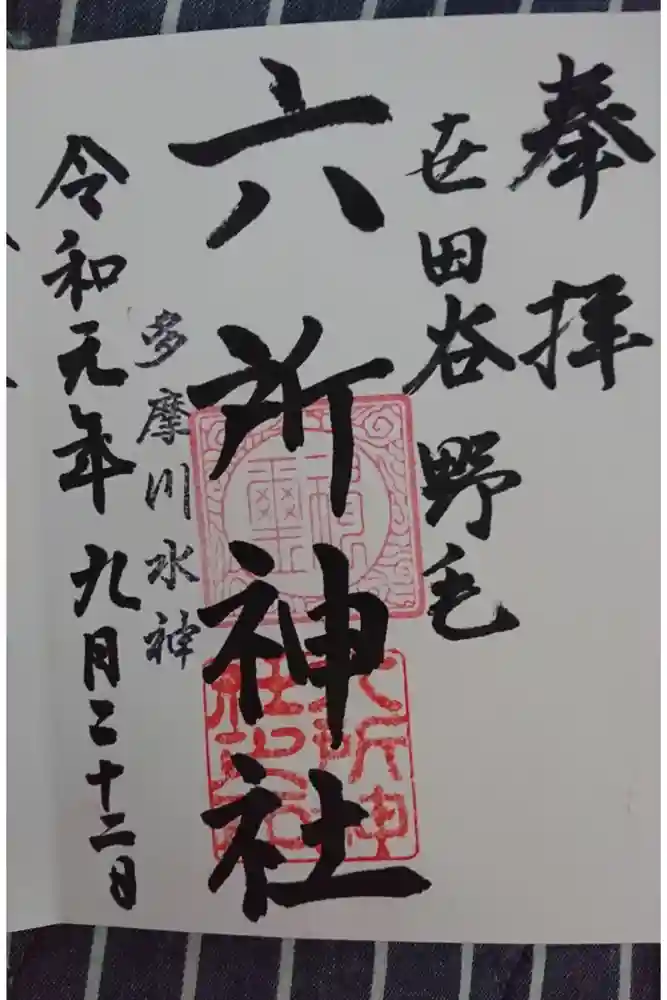 奉拝
世田谷 野毛
六所神社
多摩川水神
令和元年 九月二十二日
六所神
社之印